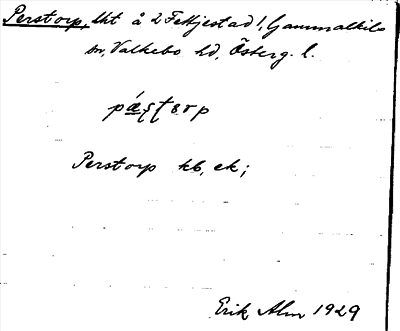 Perstorp, lht å 2 Fettjestad!, Gammalkils
sn, Valkebo hd, Österg. l.
pǽʂʈɑrp
Perstorp kb, ek;
Erik Alm 1929